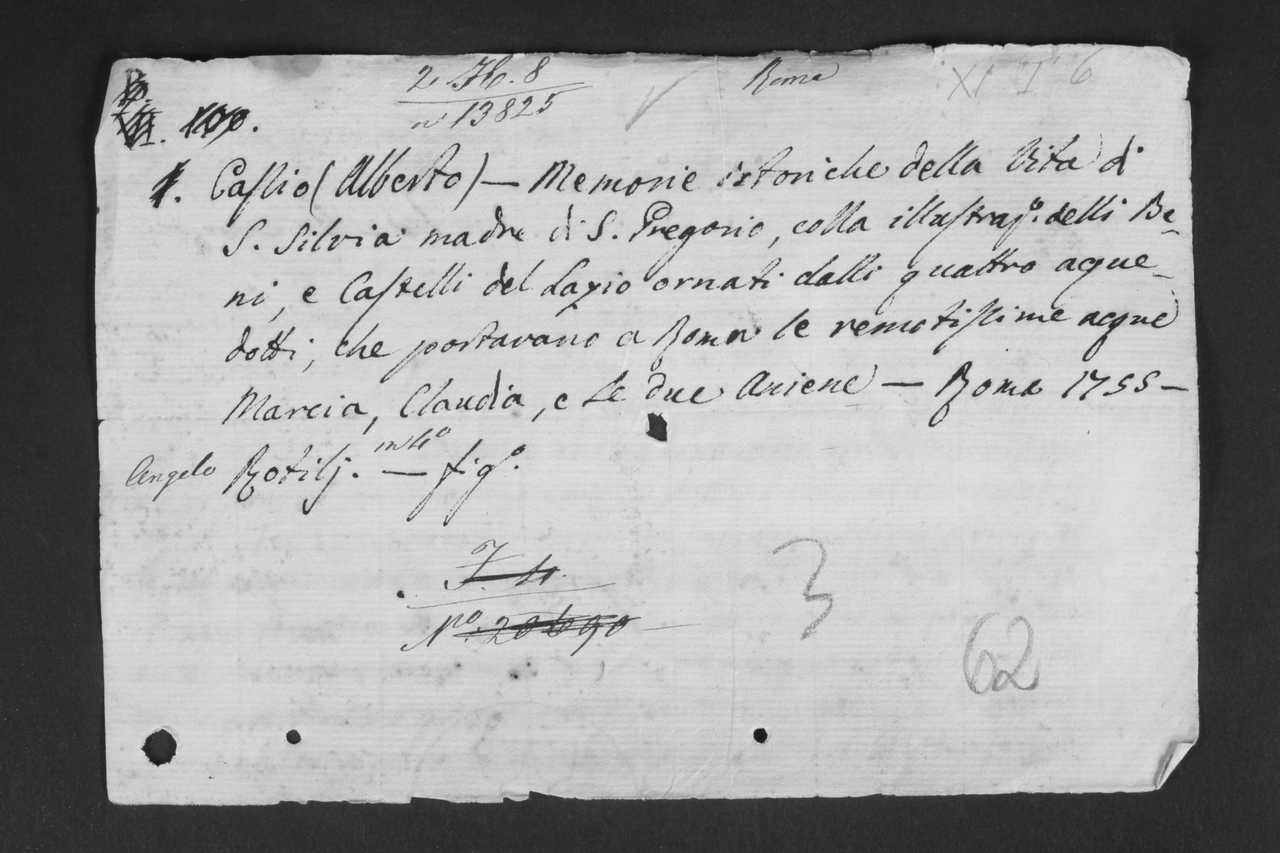 2. Th. 8
Roma
XI I 6
nº 13825
100.
1. Cassio (Alberto) — Memorie istoriche della Vita di
S. Silvia madre di S. Gregorio, colla illustraz.e delli Be-
ni, e Castelli del Lazio ornati dalli quattro acque-
dotti, che portavano a Roma le remotissime acque
Marcia, Claudia, e le due Aniene — Roma 1755 —
Angelo Rotilj. in 4º — figº.
3
Nº. 20690
62